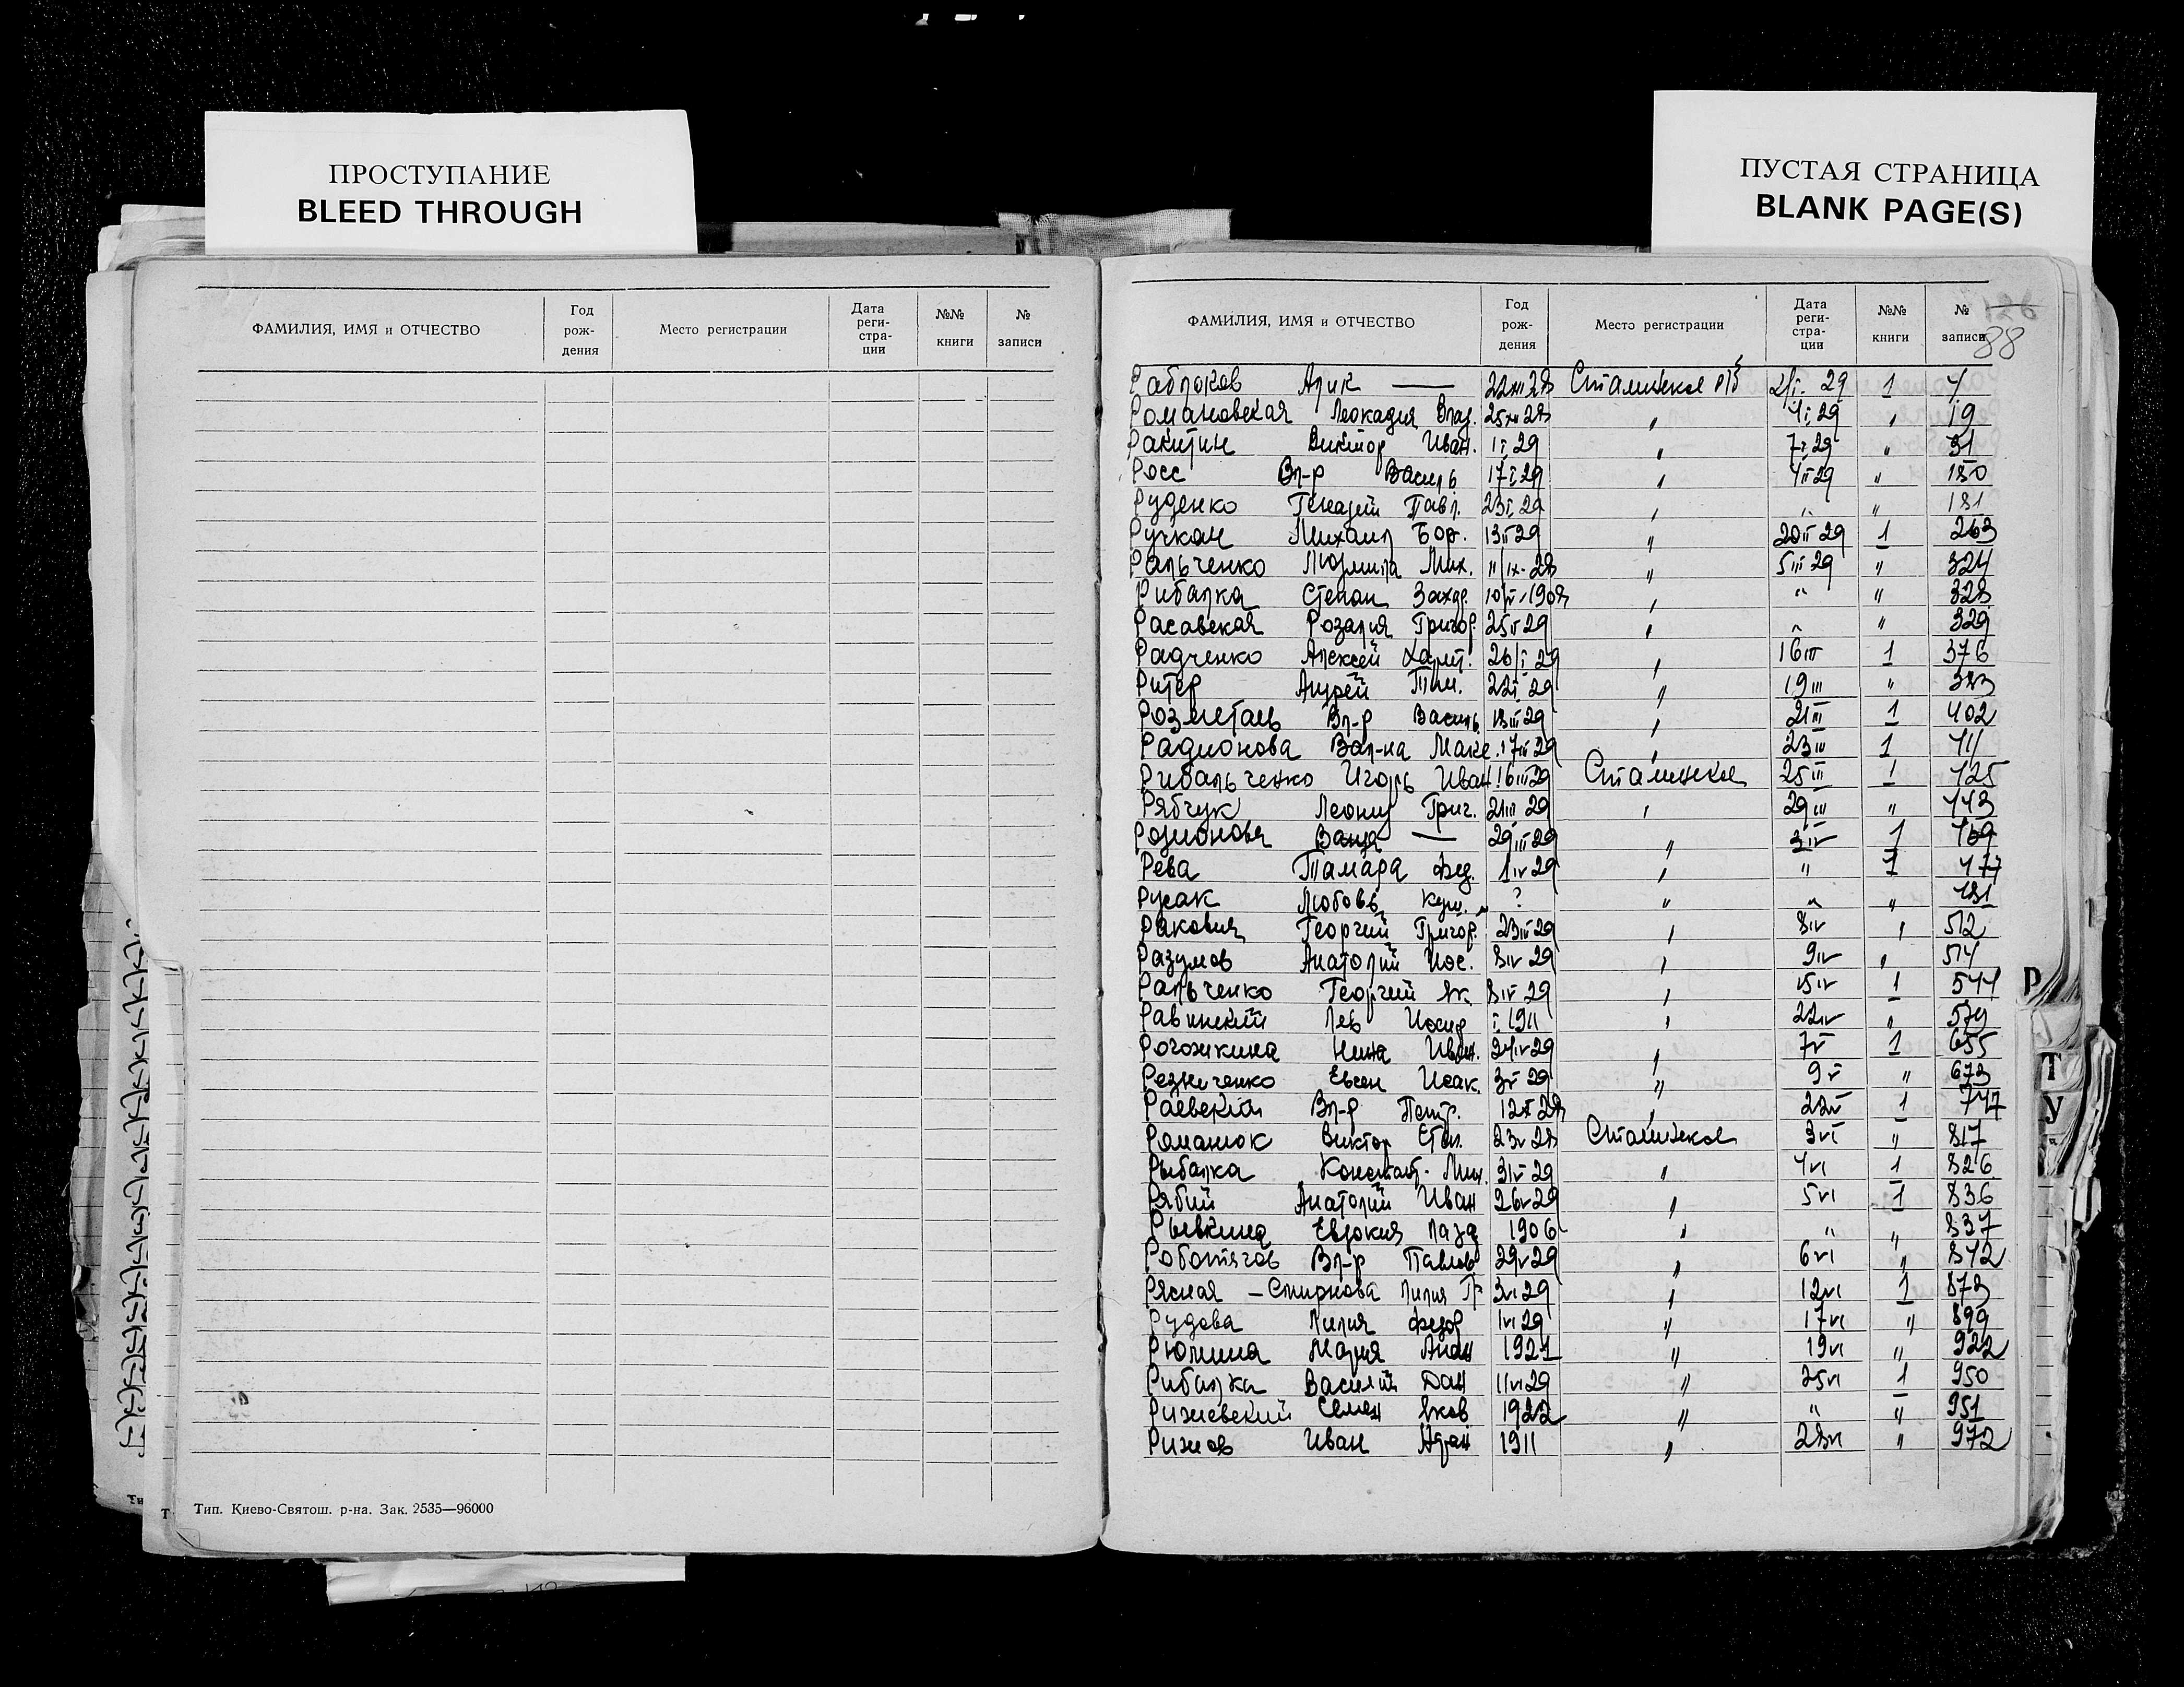 ПРОСТУПАНИЕ
BLEED THROUGH
ПУСТАЯ СТРАНИЦА
BLANK PAGE(S)
ФАМИЛИЯ, ИМЯ и ОТЧЕСТВО Год рож- дения Место регистрации Дата реги- стра- ции №№ книги № записи
Тип. Киево-Святош. р-на. Зак. 2535—96000
ФАМИЛИЯ, ИМЯ и ОТЧЕСТВО Год рож- дения Место регистрации Дата реги- стра- ции №№ книги № записи
88
Арик — 22 XII 28 Сталинское 29 1 4
Романовская Леокадия Влад. 25 XII 28 " 4 I 29 " 19
Ракитин Виктор Иван. 1 I 29 " 7 I 29 " 31
Росс Вл-р Василь 17 I 29 " 4 II 29 " 180
Руденко Генадий Павл. 23 I 29 " " " 181
Ручкан Михаил Бор. 13 II 29 " 20 II 29 1 263
Ральченко Людмила Мих. 11/IX-28 " 5 III 29 " 324
Рибалка Степан Захар. " " " 328
Расавская Розалия Григор. 25 II 29 " " " 329
Радченко Алексей Харит. 26/I 29 " 16 III 1 376
Ритер Андрей Тим. 22 I 29 " 19 III " 383
Розметаев Вл-р Василь 18 III 29 " 21 III 1 402
Радионова Вал-на Макс. 17 III 29 " 23 III 1 411
Рибальченко Игорь Иван 16 III 29 Сталинское 25 III 1 425
Рябчук Леонид Григ. 21 III 29 " 29 III " 443
Ванда — 29 III 29 " 3 IV 1 469
Рева Тамара Фед. 1 IV 29 " " 1 477
Русак Любовь ? " " " 481
Раковия Георгий Григор. 23 III 29 " 8 IV " 512
Разумов Анатолий Иос. 8 IV 29 " 9 IV " 514
Ральченко Георгий Як. 8 IV 29 " 15 IV 1 544
Равинский Лев Иосиф I 1911 " 22 IV " 579
Рогожкина Нина Иван. 24 IV 29 " 7 V 1 655
Резниченко Евсей Исак. 3 V 29 " 9 V " 673
Раевский Вл-р Петр. " 22 V 1 747
Романюк Виктор Степ. Сталинское 3 VI " 817
Рыбалка Констант. Мих. 31 V 29 " 4 VI 1 826
Рябий Анатолий Иван 26 V 29 " 5 VI 1 836
Рывкина Евдокия Лаза 1906 " " " 837
Роботягов Вл-р Павлов 29 V 29 " 6 VI " 842
Рясная — Смирнова Лилия Гр 3 VI 29 " 12 VI 1 873
Рудова Лилия Федор 1 VI 29 " 17 VI " 899
Рюмина Мария Анан 1921 " 19 VI " 922
Рибалка Василий Дан 11 VI 29 " 25 VI 1 950
Рижевский Семен Яков 1922 " " " 951
Рижов Иван Адам 1911 " 28 VI " 972
Р
Т
У